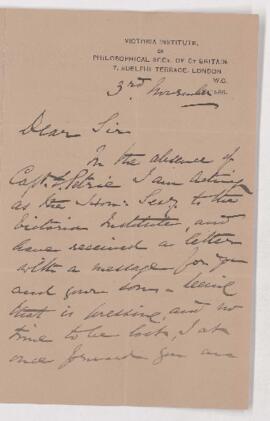 VICTORIA INSTITUTE,
OR
PHILOSOPHICAL SOCY. OF GT BRITAIN
7, ADELPHI TERRACE, LONDON
W.C.
3rd November 188
Dear Sir
In the absence of
Capt. Petrie I am acting
as the Hon. Secy to the
Victoria Institute, and
have received a letter
with a message for you
and your sons - being
that is pressing, and no
time to be lost, I at
once forward you an